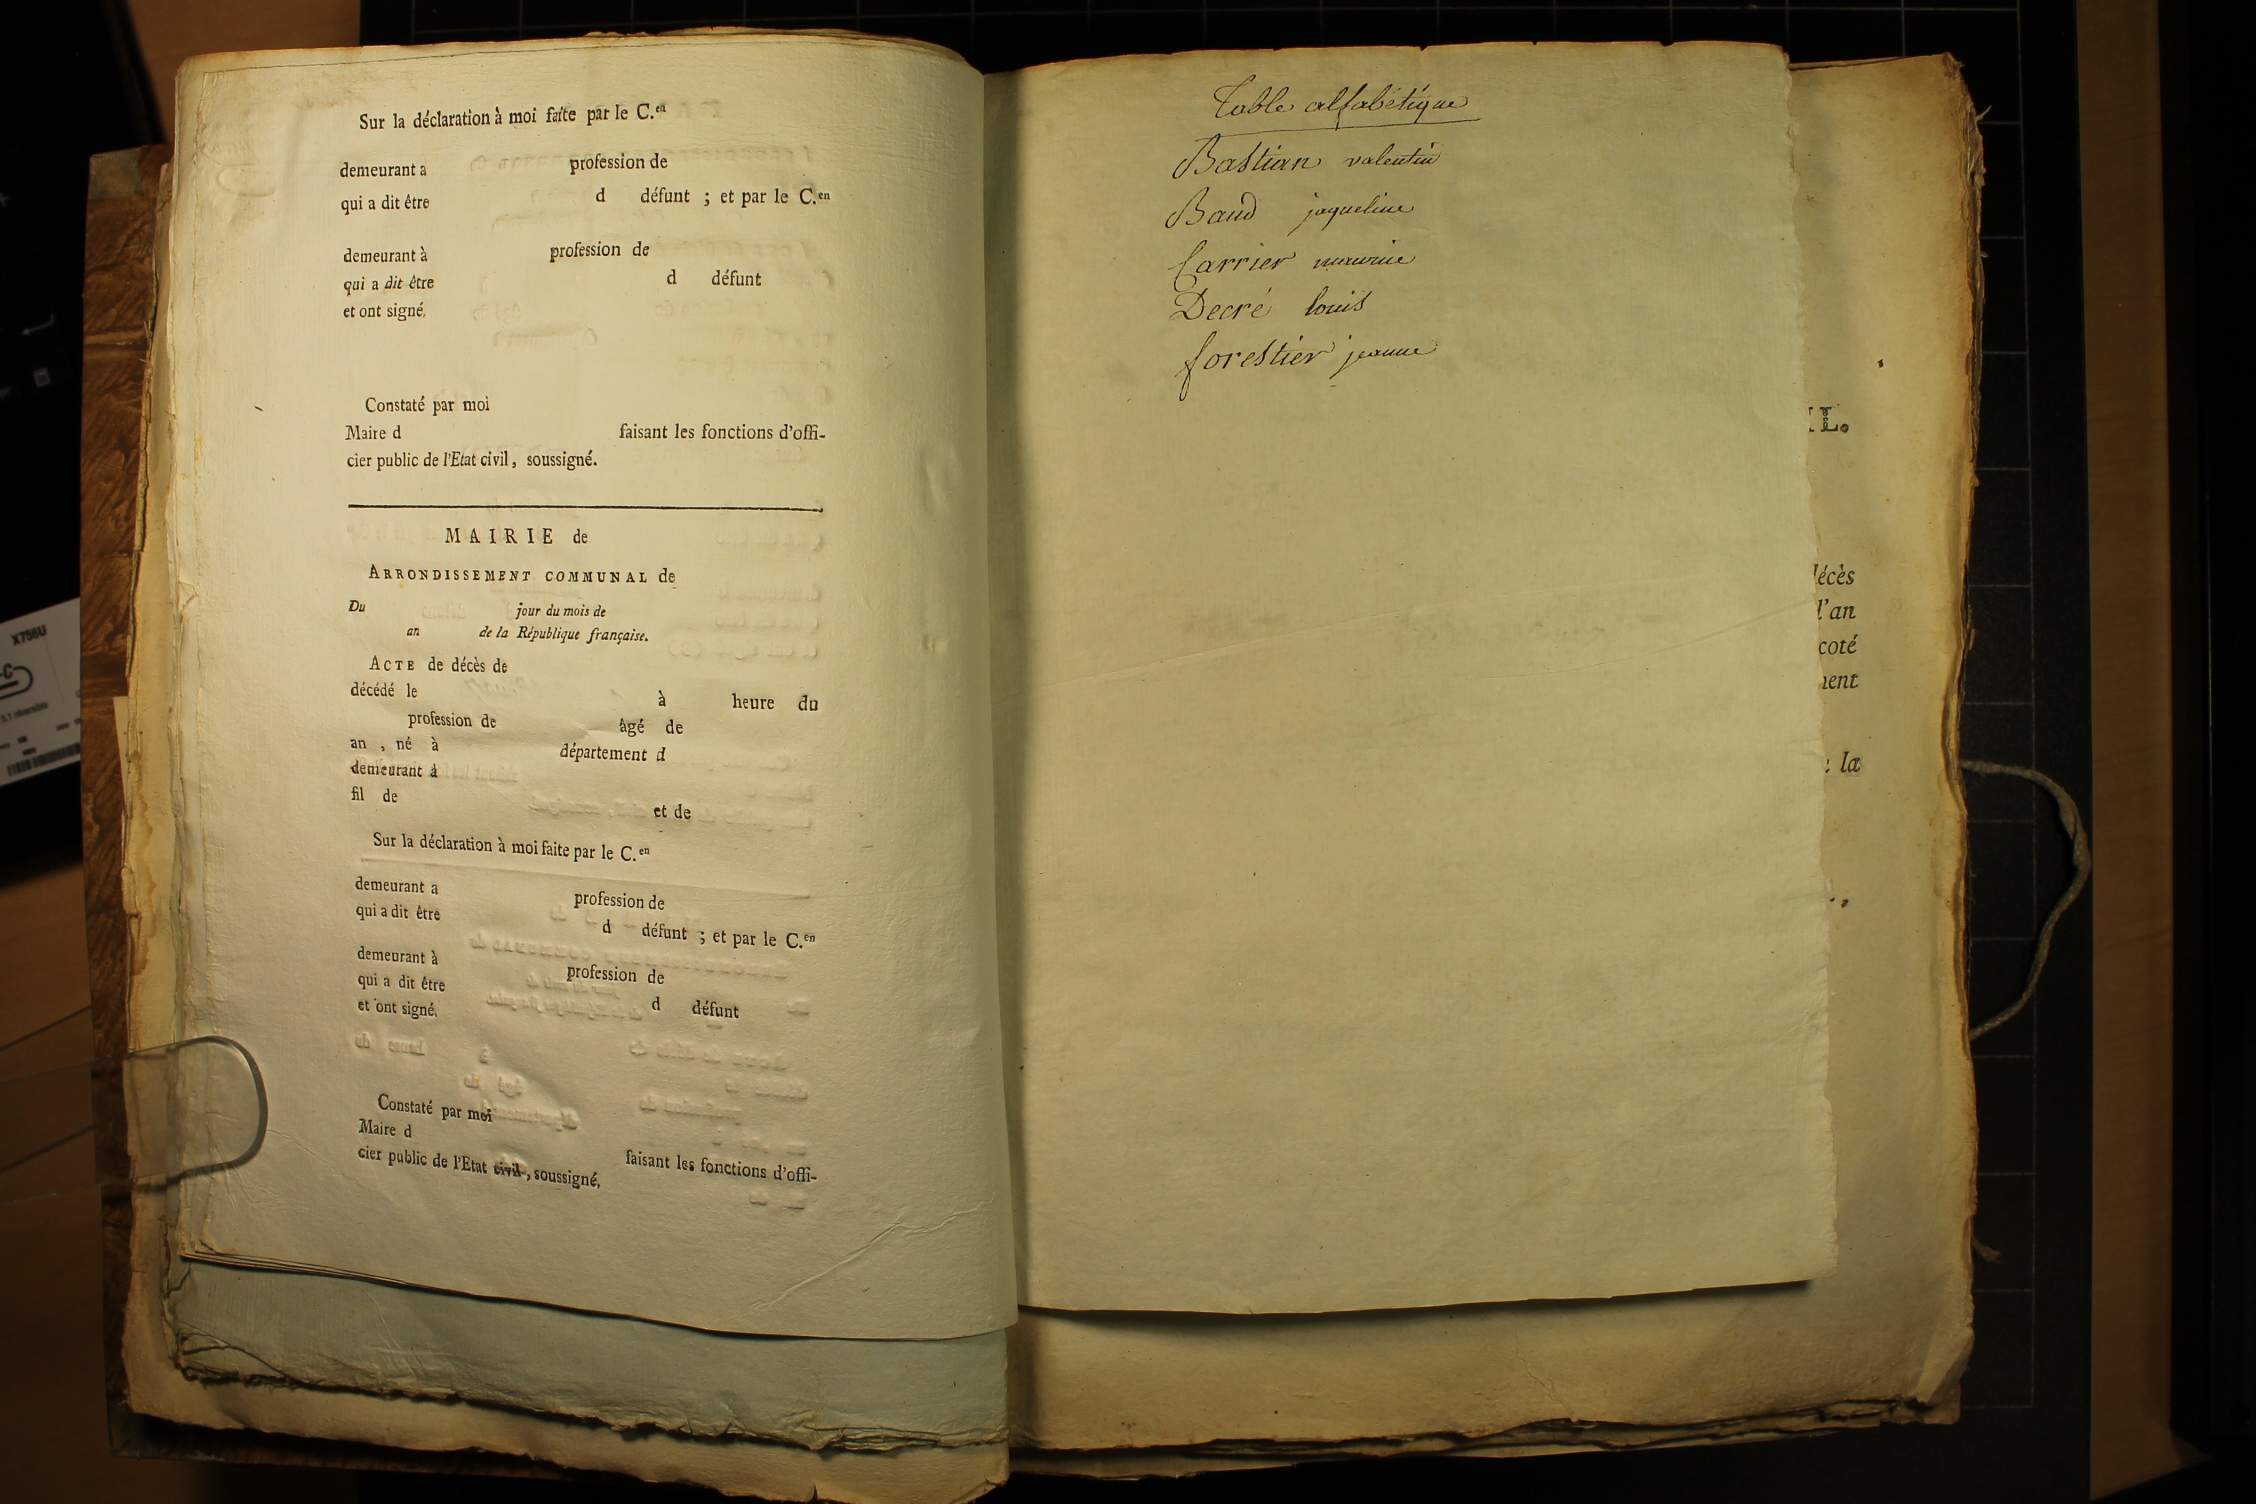 Sur la déclaration à moi faite par le C.en
demeurant a profession de
qui a dit être d défunt ; et par le C.en
demeurant à profession de
qui a dit être d défunt
et ont signé,
Constaté par moi
Maire d faisant les fonctions d'offi-
cier public de l'Etat civil, soussigné.
MAIRIE de
ARRONDISSEMENT COMMUNAL de
Du jour du mois de
an de la République française.
ACTE de décès de
décédé le à heure du
profession de âgé de
an , né à département d
demeurant à
fil de et de
Sur la déclaration à moi faite par le C.en
demeurant a profession de
qui a dit être d défunt ; et par le C.en
demeurant à profession de
qui a dit être d défunt
et ont signé,
Constaté par moi
Maire d faisant les fonctions d'offi-
cier public de l'Etat civil, soussigné,
Table alfabétique
Bastian valentin
Baud jaqueline
Carrier maurice
Decré louis
forestier jeanne
IL.
décès
l'an
coté
ment
la
X756U